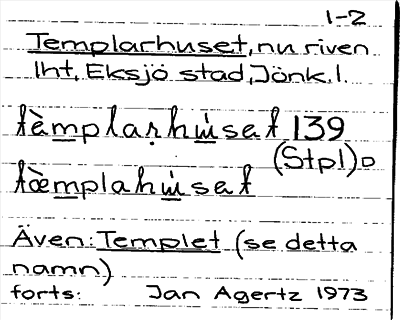 1-2
Templarhuset, nu riven
lht, Eksjö stad, Jönk. l.
tèmplarhu̇set 139
(Stpl)
tæ̀mplahu̇set
Även: Templet (se detta
namn)
forts: Jan Agertz 1973